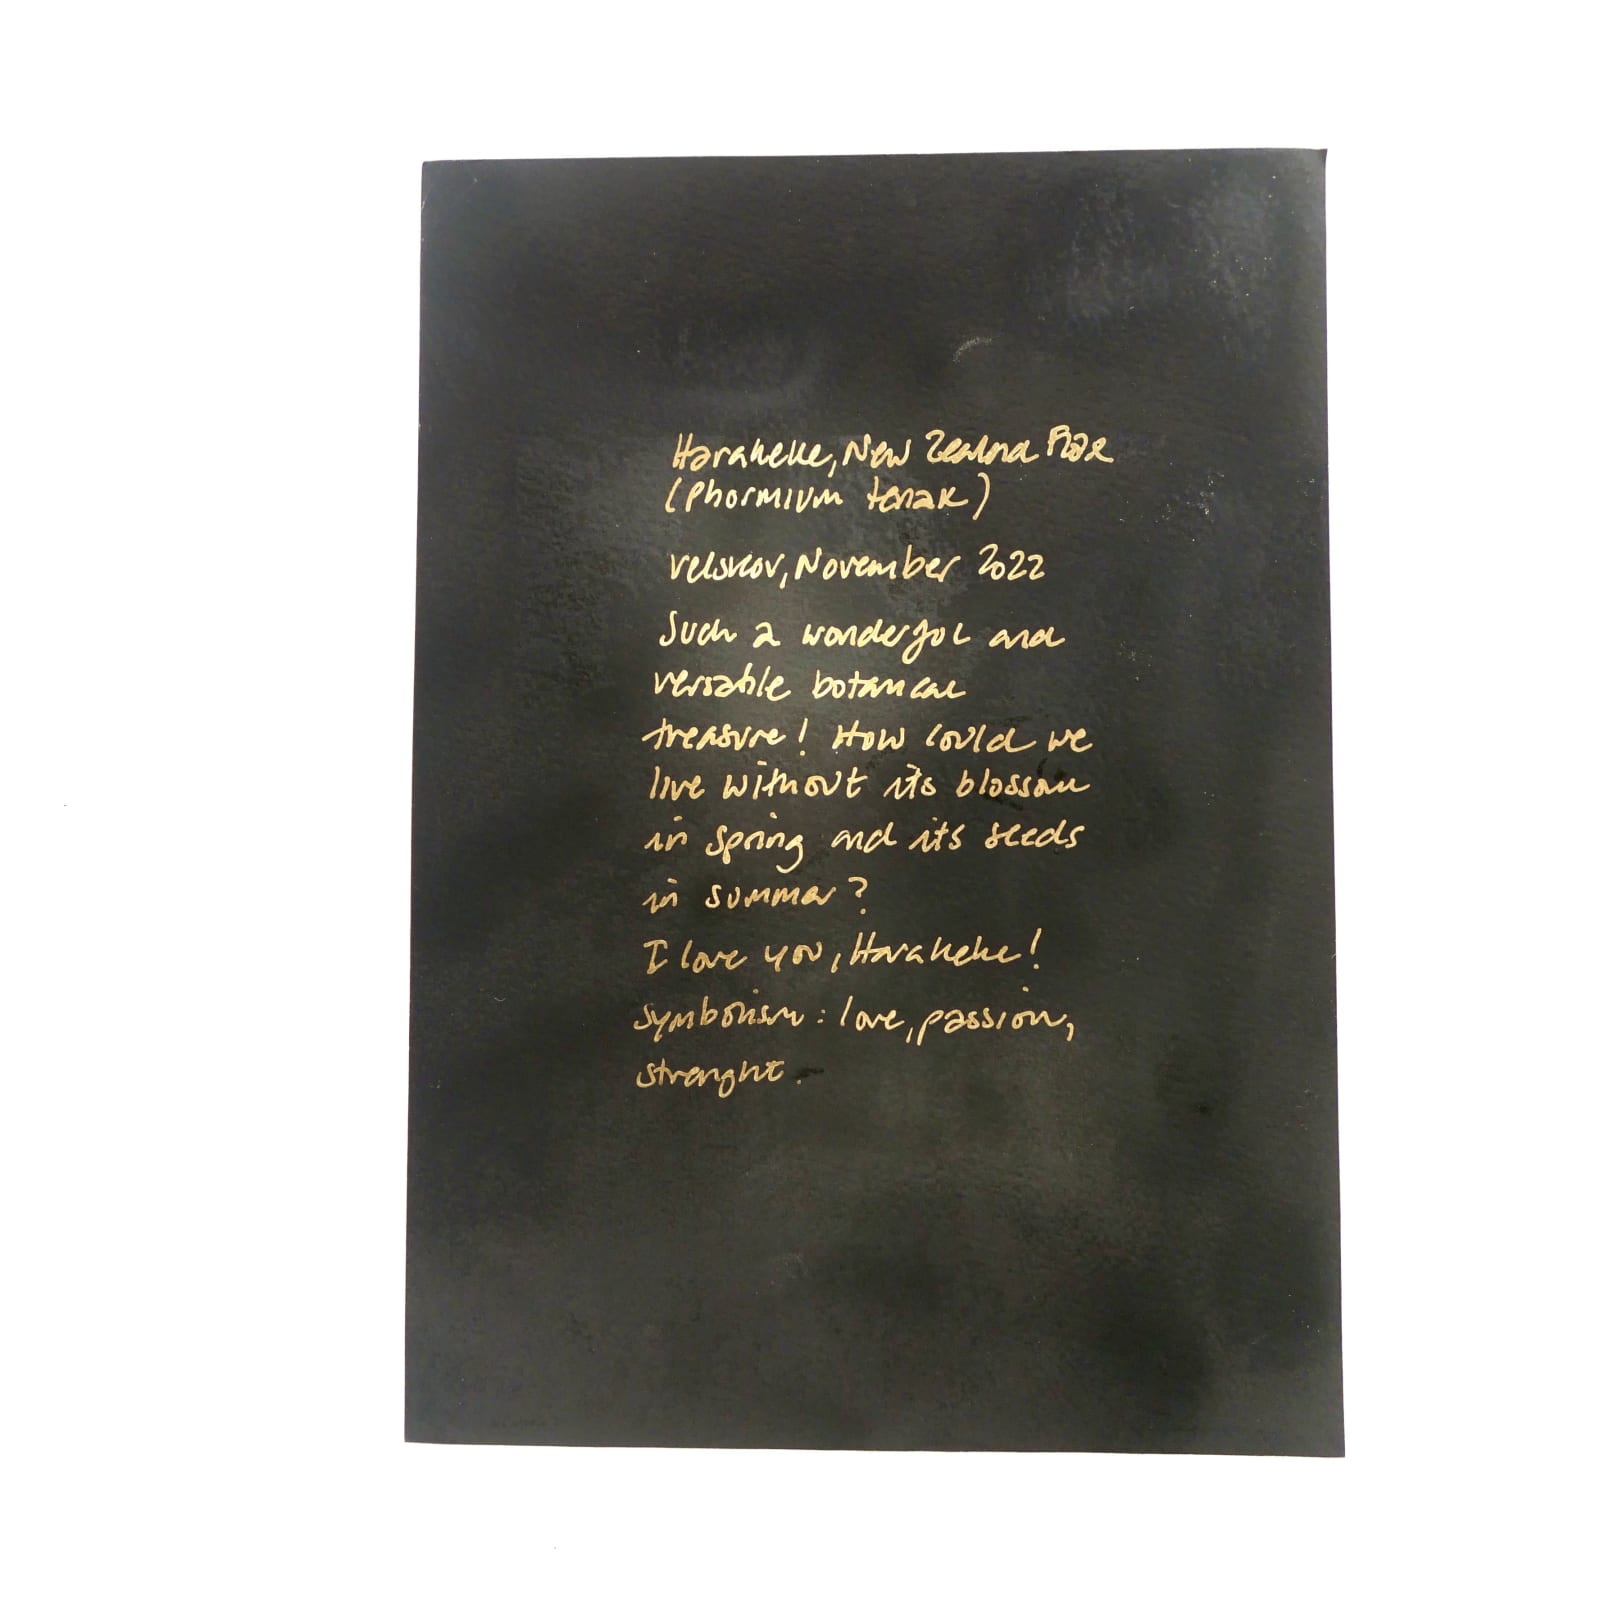 Harakeke, New Zealand Flax
(Phormium tenax)
Velskov, November 2022
Such a wonderful and
versatile botanical
treasure! How could we
live without its blossom
in spring and its seeds
in summer?
I love you, Harakeke!
Symbolism: love, passion,
strenght.